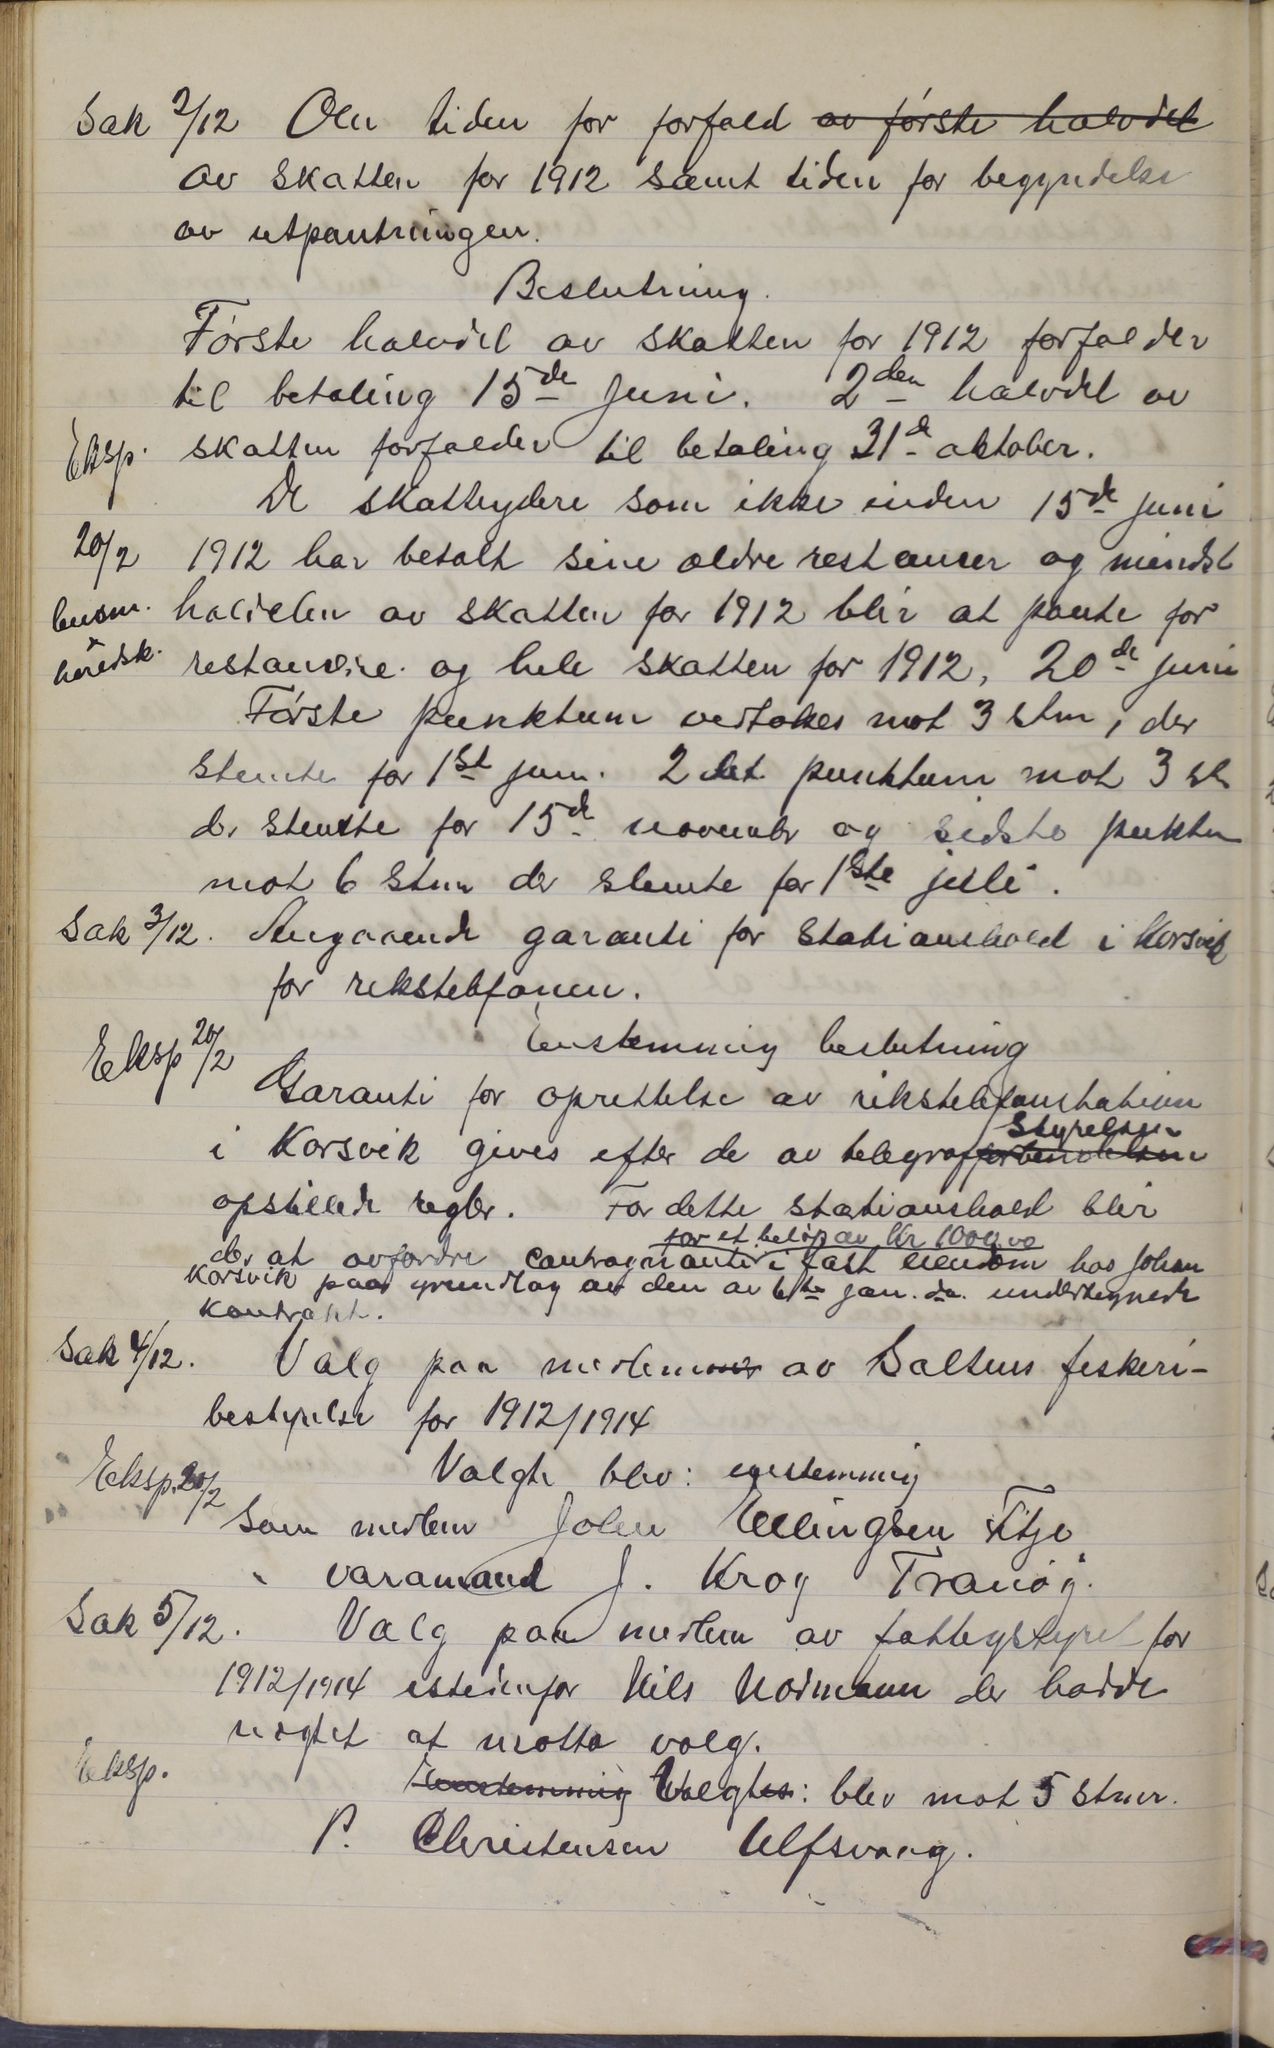 Sak 2/12 Om tiden for forfald av første halvdel
av skatten for 1912 samt tiden for begyndelse
av utpantningen.
Beslutning.
Første halvdel av skatten for 1912 forfalder
til betaling 15de juni. 2den halvdel av
Eksp. skatten forfalder til betaling 31te oktober.
De skatteydere som ikke inden 15de juni
20/2 1912 har betalt sine ældre restanser og mindst
lensm. halvdelen av skatten for 1912 blir at pante for
heredsk. restancene og hele skatten for 1912, 20de juni
Første punktum vedtokes mot 3 stm, der
stemte for 1st juni. 2det punktum mot 3 st
der stemte for 15de november og sidste punktum
mot 6 stmr der stemte for 1ste juli.
Sak 3/12. Angaaende garanti for stationshold i Korsvik
for rikstelefonen.
Eksp 20/2 Enstemmig beslutning
Garanti for oprettelse av rikstelefonstation
styrelsen
i Korsvik gives efter de av telegraf
opstillede regler. For dette stationshold blir
for et beløp av Kr 1000,00
der at avfordre contragaranti i fast eiendom hos Johan
Korsvik paa grundlag av den av 6te jan. d.a. undertegnede
kontrakt.
Sak 4/12. Valg paa medlemmer av Saltens fiskeri-
bestyrelse for 1912/1914
Eksp. 20/2 Valgte blev: enstemmig
Som medlem John Ellingsen Fitje
" varamand J. Krog Tranøy.
Sak 5/12. Valg paa medlem av fattigstyret for
1912/1914 istedenfor Nils Normann der hadde
nægtet at motta valg.
Eksp.
Enstemmig Valgtes: blev mot 5 stmr.
P. Christensen Ulfsvaag.